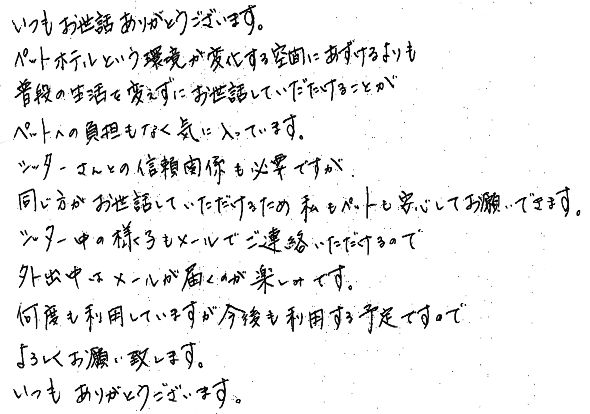 いつもお世話ありがとうございます。
ペットホテルという環境が変化する空間にあずけるよりも
普段の生活を変えずにお世話していただけることが
ペットへの負担もなく気に入っています。
シッターさんとの信頼関係も必要ですが、
同じ方がお世話していただけるため私もペットも安心してお願いできます。
シッター中の様子もメールでご連絡いただけるので
外出中はメールが届くのが楽しみです。
何度も利用していますが今後も利用する予定ですので
よろしくお願い致します。
いつもありがとうございます。